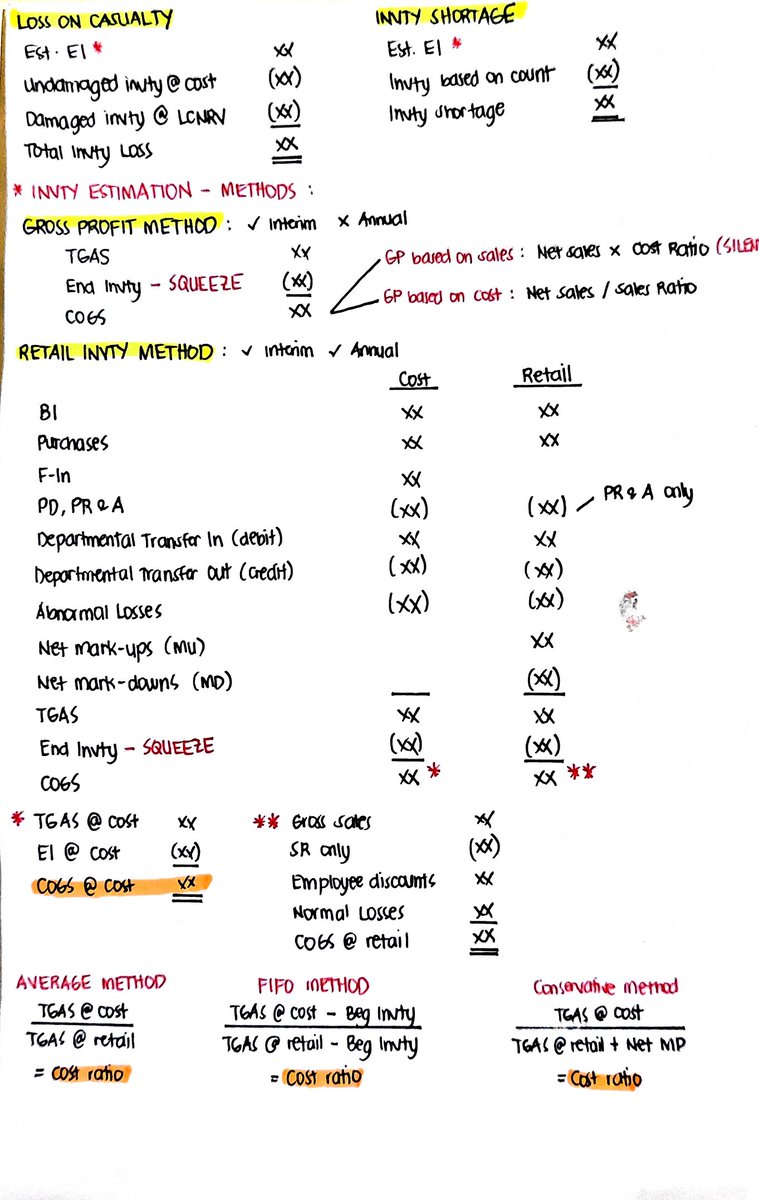 LOSS ON CASUALTY
Est. EI * xx
Undamaged invty @ cost (xx)
Damaged invty @ LCNRV (xx)
Total Invty Loss xx
INVTY SHORTAGE
Est. EI * xx
Invty based on count (xx)
Invty shortage xx
* INVTY ESTIMATION - METHODS :
GROSS PROFIT METHOD : ✓ Interim x Annual
TGAS xx
End Invty - SQUEEZE (xx)
COGS xx
GP based on sales : Net sales x Cost Ratio (SILEN
GP based on cost : Net sales / Sales Ratio
RETAIL INVTY METHOD : ✓ Interim ✓ Annual
Cost Retail
BI xx xx
Purchases xx xx
F-In xx
PD, PR & A (xx) (xx) PR & A only
Departmental Transfer In (debit) xx xx
Departmental Transfer Out (credit) (xx) (xx)
Abnormal Losses (xx) (xx)
Net mark-ups (MU) xx
Net mark-downs (MD) (xx)
TGAS xx xx
End Invty - SQUEEZE (xx) (xx)
COGS xx * xx **
* TGAS @ cost xx
EI @ cost (xx)
COGS @ cost xx
** Gross sales xx
SR only (xx)
Employee discounts xx
Normal Losses xx
COGS @ retail xx
AVERAGE METHOD
TGAS @ cost
TGAS @ retail
= cost ratio
FIFO METHOD
TGAS @ cost - Beg Invty
TGAS @ retail - Beg Invty
= cost ratio
Conservative method
TGAS @ cost
TGAS @ retail + Net MD
= cost ratio